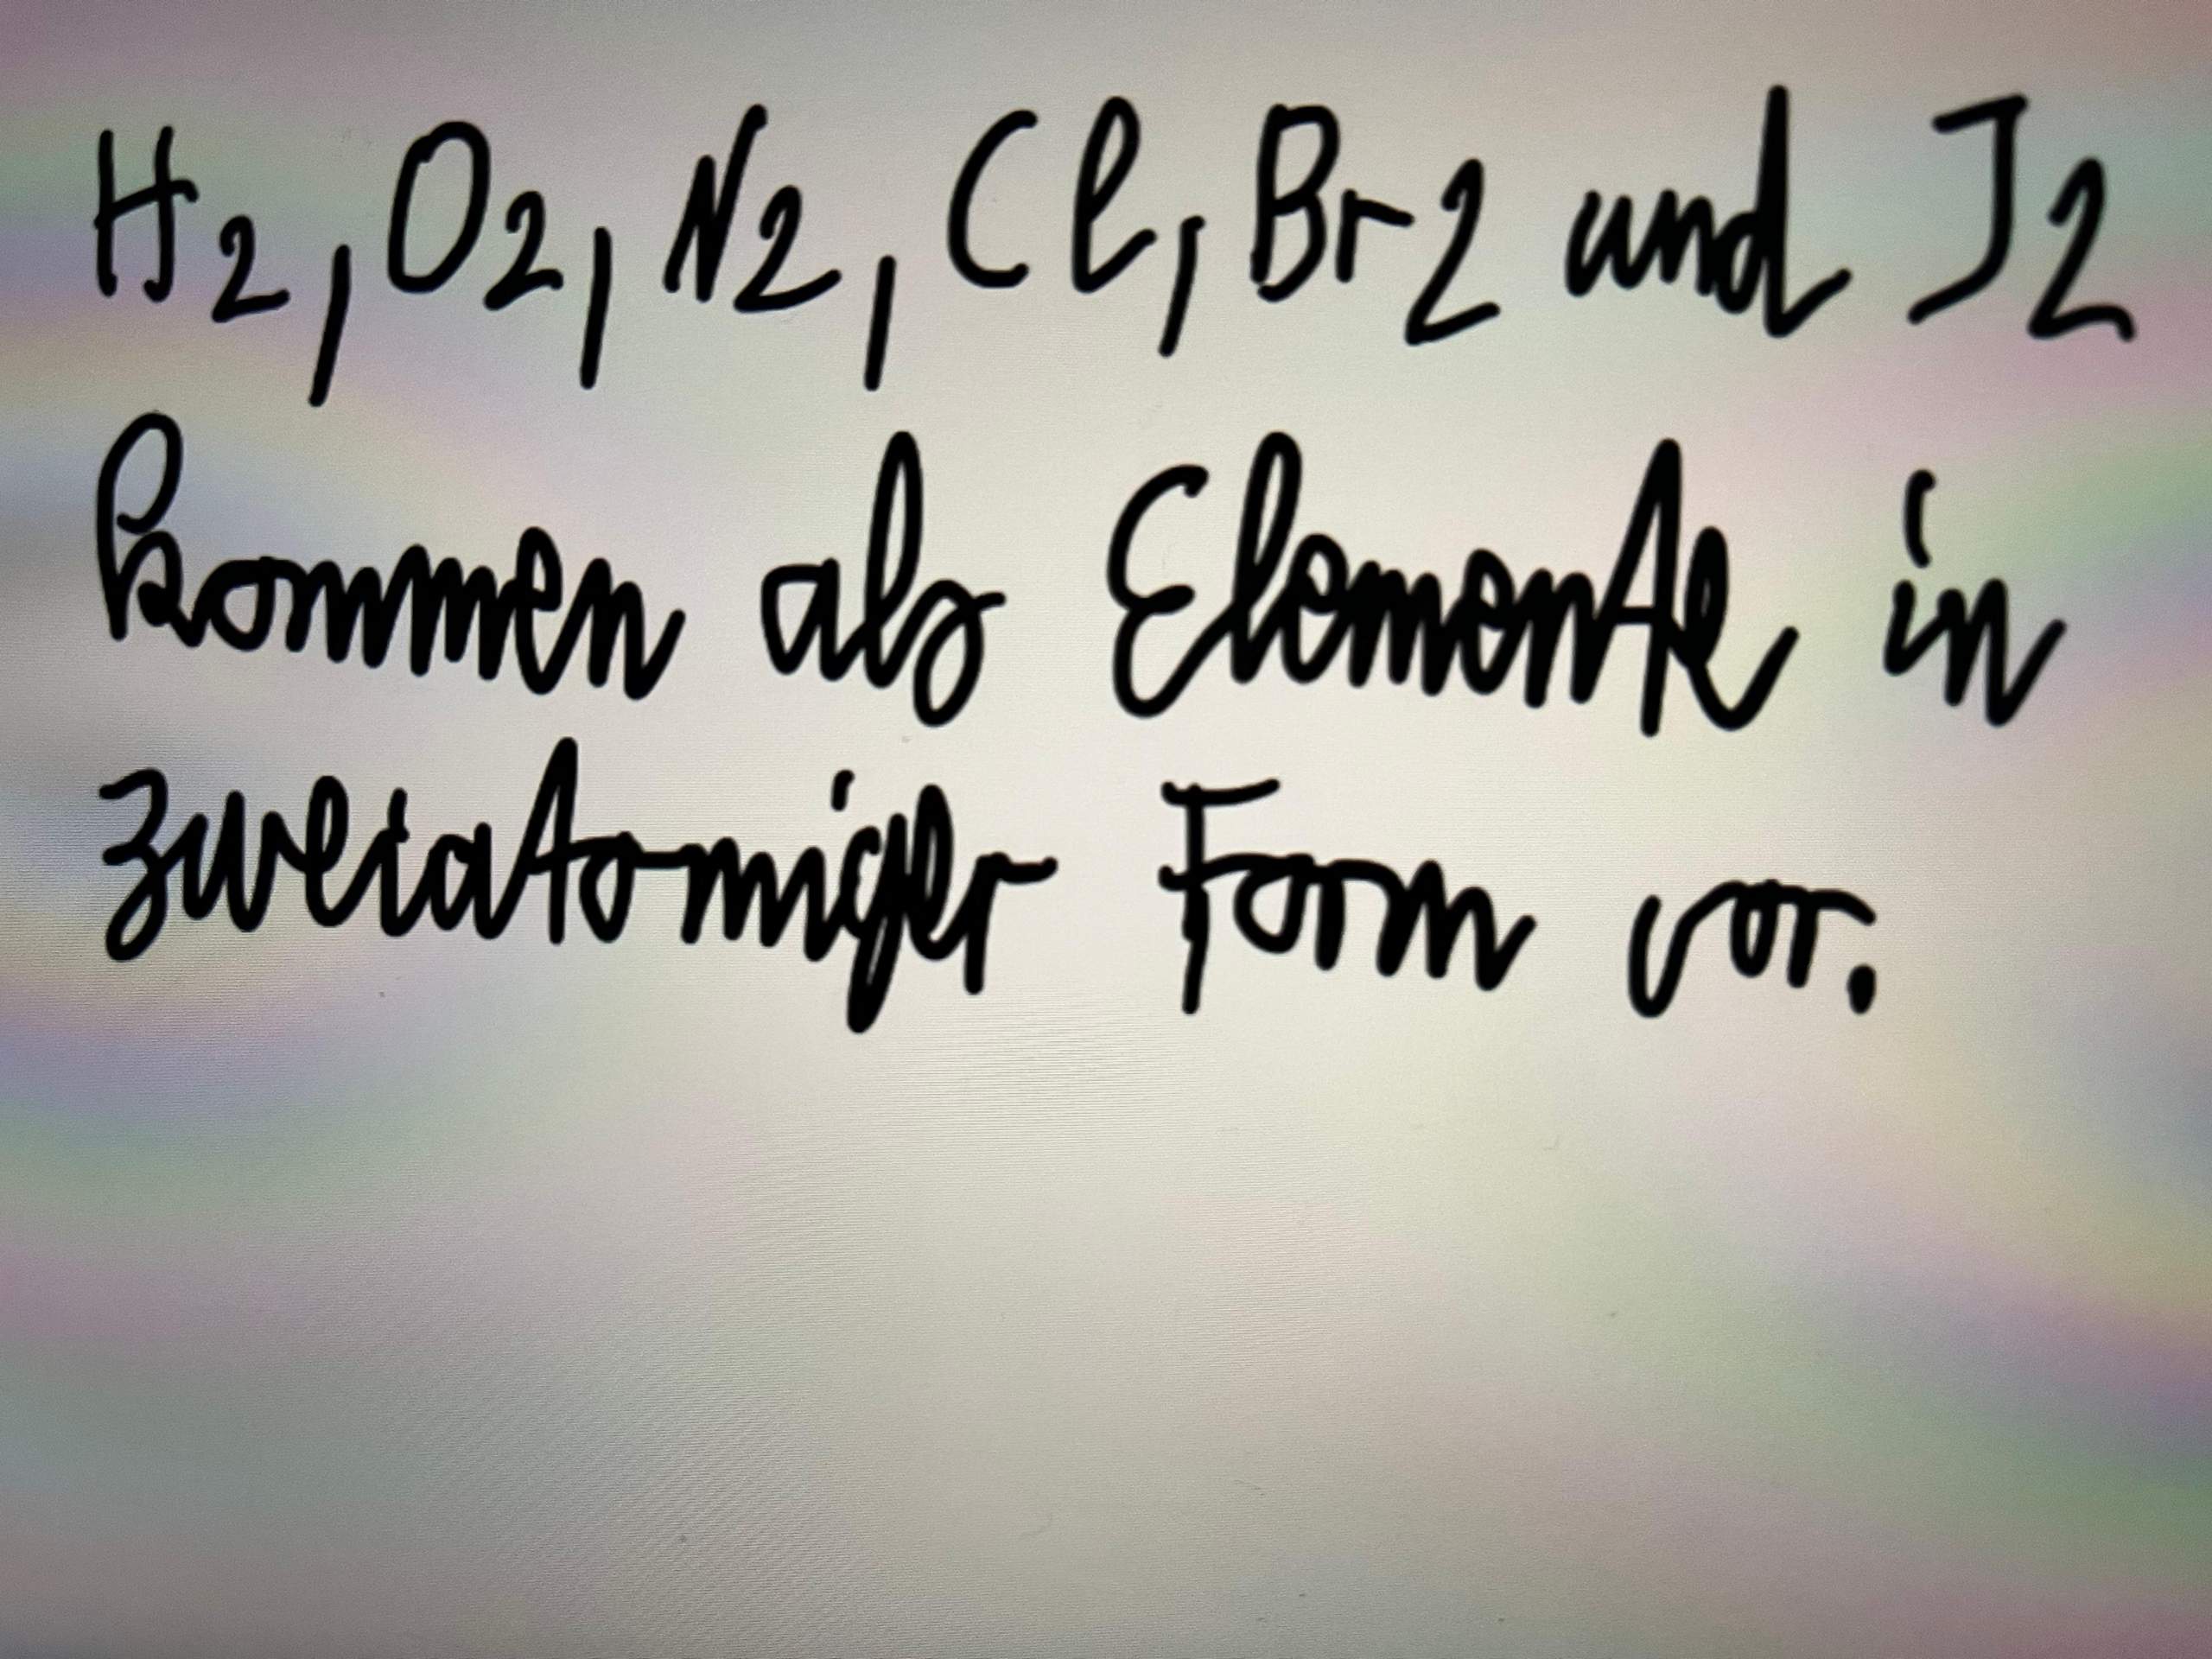 H2, O2, N2, Cl, Br2 und J2
kommen als Elemente in
zweiatomiger Form vor.